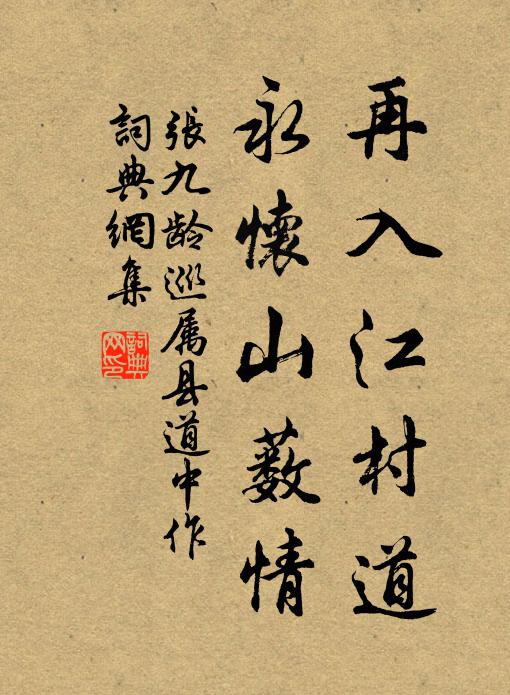 再入江村道
永懷山藪情
張九龄巡属县道中作
詞典網集
詞典網印